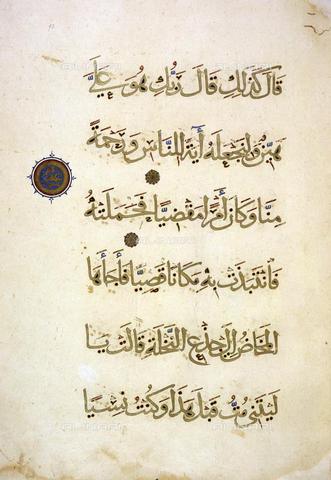 قَالَ كَذَٰلِكِ قَالَ رَبُّكِ هُوَ عَلَيَّ
هَيِّنٌ وَلِنَجْعَلَهُ آيَةً لِلنَّاسِ وَرَحْمَةً
مِنَّا وَكَانَ أَمْرًا مَقْضِيًّا فَحَمَلَتْهُ
فَانْتَبَذَتْ بِهِ مَكَانًا قَصِيًّا فَأَجَاءَهَا
الْمَخَاضُ إِلَىٰ جِذْعِ النَّخْلَةِ قَالَتْ يَا
لَيْتَنِي مُتُّ قَبْلَ هَٰذَا وَكُنْتُ نَسْيًا